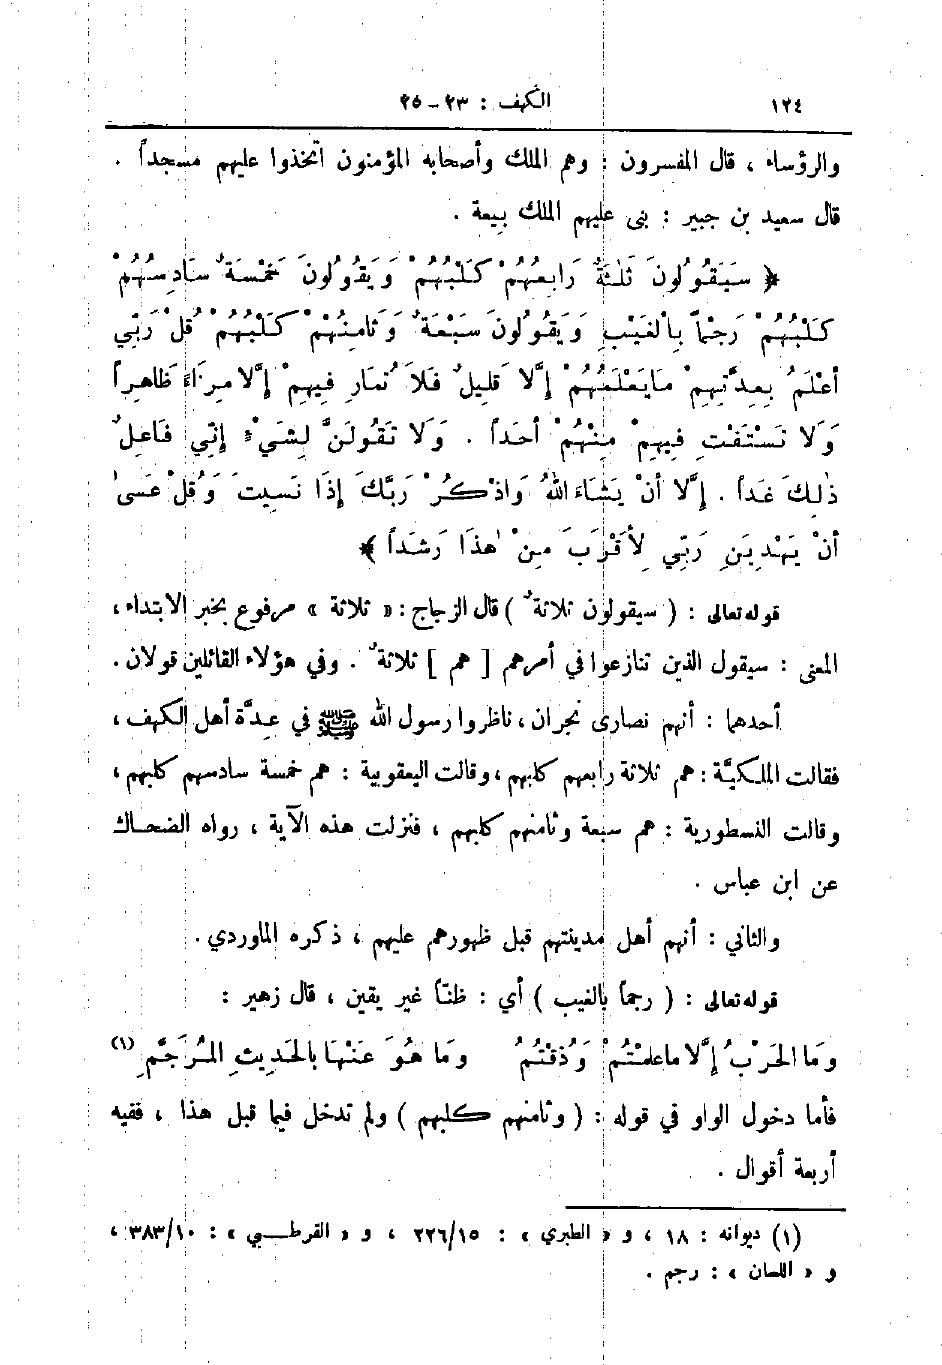 ١٢٤
الكهف : ٢٣ - ٢٥
والرؤساء ، قال المفسرون : وهم الملك وأصحابه المؤمنون اتخذوا عليهم مسجداً .
قال سعيد بن جبير : بنى عليهم الملك بِيعة .
﴿ سَيَقُولُونَ ثَلٰثَةٌ رَابِعُهُمْ كَلْبُهُمْ وَيَقُولُونَ خَمْسَةٌ سَادِسُهُمْ
كَلْبُهُمْ رَجْماً بِالْغَيْبِ وَيَقُولُونَ سَبْعَةٌ وَثَامِنُهُمْ كَلْبُهُمْ قُلْ رَبِّي
أَعْلَمُ بِعِدَّتِهِمْ مَا يَعْلَمُهُمْ إِلَّا قَلِيلٌ فَلَا تُمَارِ فِيهِمْ إِلَّا مِرَاءً ظَاهِراً
وَلَا تَسْتَفْتِ فِيهِمْ مِنْهُمْ أَحَداً . وَلَا تَقُولَنَّ لِشَيْءٍ إِنِّي فَاعِلٌ
ذٰلِكَ غَداً . إِلَّا أَنْ يَشَاءَ اللهُ وَاذْكُرْ رَبَّكَ إِذَا نَسِيتَ وَقُلْ عَسَىٰ
أَنْ يَهْدِيَنِ رَبِّي لِأَقْرَبَ مِنْ هٰذَا رَشَداً ﴾
قوله تعالى : ( سيقولون ثلاثةٌ ) قال الزجاج : « ثلاثة » مرفوع بخبر الابتداء ،
المعنى : سيقول الذين تنازعوا في أمرهم [ هم ] ثلاثةٌ . وفي هؤلاء القائلين قولان .
أحدهما : أنهم نصارى نجران ، ناظروا رسول الله ﷺ في عِدَّة أهل الكهف ،
فقالت الملكيَّة : هم ثلاثة رابعهم كلبهم ، وقالت اليعقوبية : هم خمسة سادسهم كلبهم ،
وقالت النسطورية : هم سبعة وثامنهم كلبهم ، فنزلت هذه الآية ، رواه الضحاك
عن ابن عباس .
والثاني : أنهم أهل مدينتهم قبل ظهورهم عليهم ، ذكره الماوردي .
قوله تعالى : ( رجماً بالغيب ) أي : ظنّاً غير يقين ، قال زهير :
وَمَا الحَرْبُ إِلَّا ما عَلِمْتُمْ وَذُقْتُمُ وَمَا هُوَ عَنْهَا بالحَدِيثِ المُرَجَّمِ (١)
فأما دخول الواو في قوله : ( وثامنهم كلبهم ) ولم تدخل فيما قبل هذا ، ففيه
أربعة أقوال .
(١) ديوانه : ١٨ ، و « الطبري » : ٢٢٦/١٥ ، و « القرطبي » : ٣٨٣/١٠ ،
و « اللسان » : رجم .